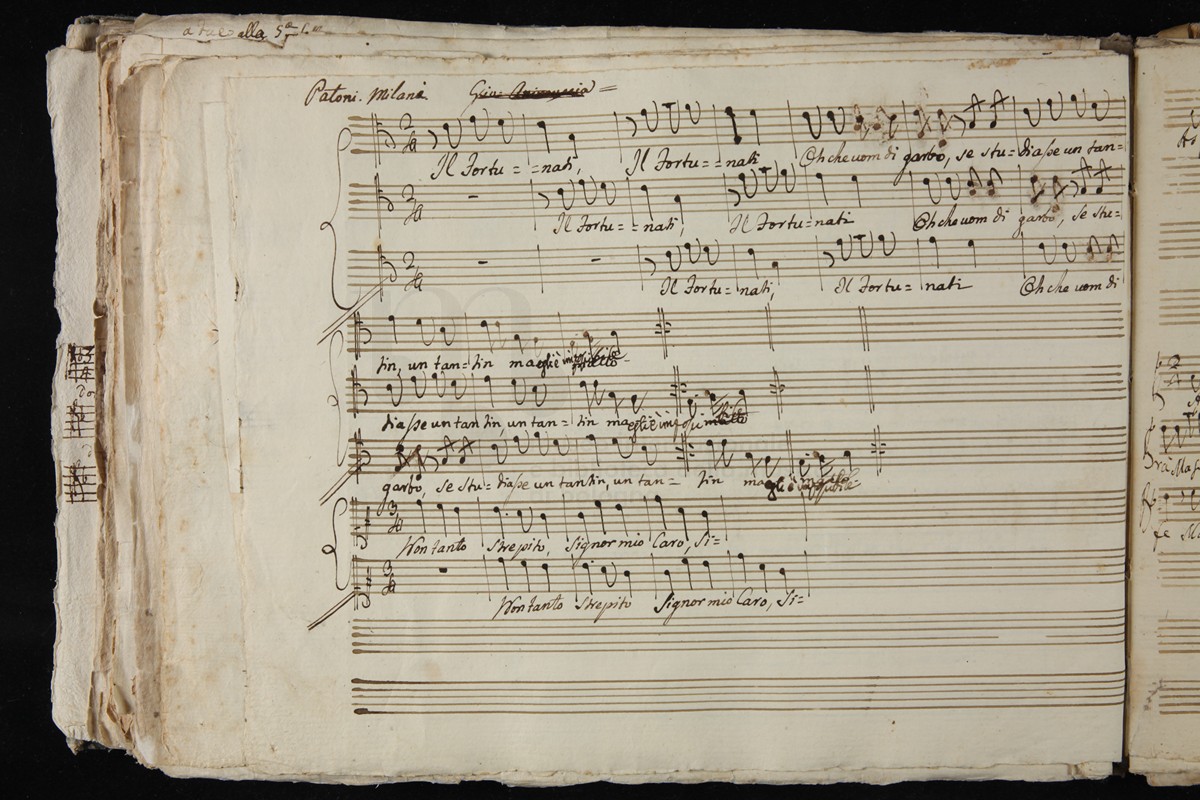 alla 5
Patoni. Milani. Giov: Animuccia =
Il Fortu= =nati, Il Fortu= =nati Oh che uom di garbo, se stu= diasse un tan=
Il Fortu= =nati, Il Fortu=nati Oh che uom di garbo, se stu=
Il Fortu= nati, Il Fortu= nati Oh che uom di
tin, un tan= tin ma
diasse un tantin, un tan= tin ma
garbo, se stu= diasse un tantin, un tan= tin ma
Non tanto strepito, Signor mio Caro, Si=
Non tanto strepito Signor mio Caro, Si=